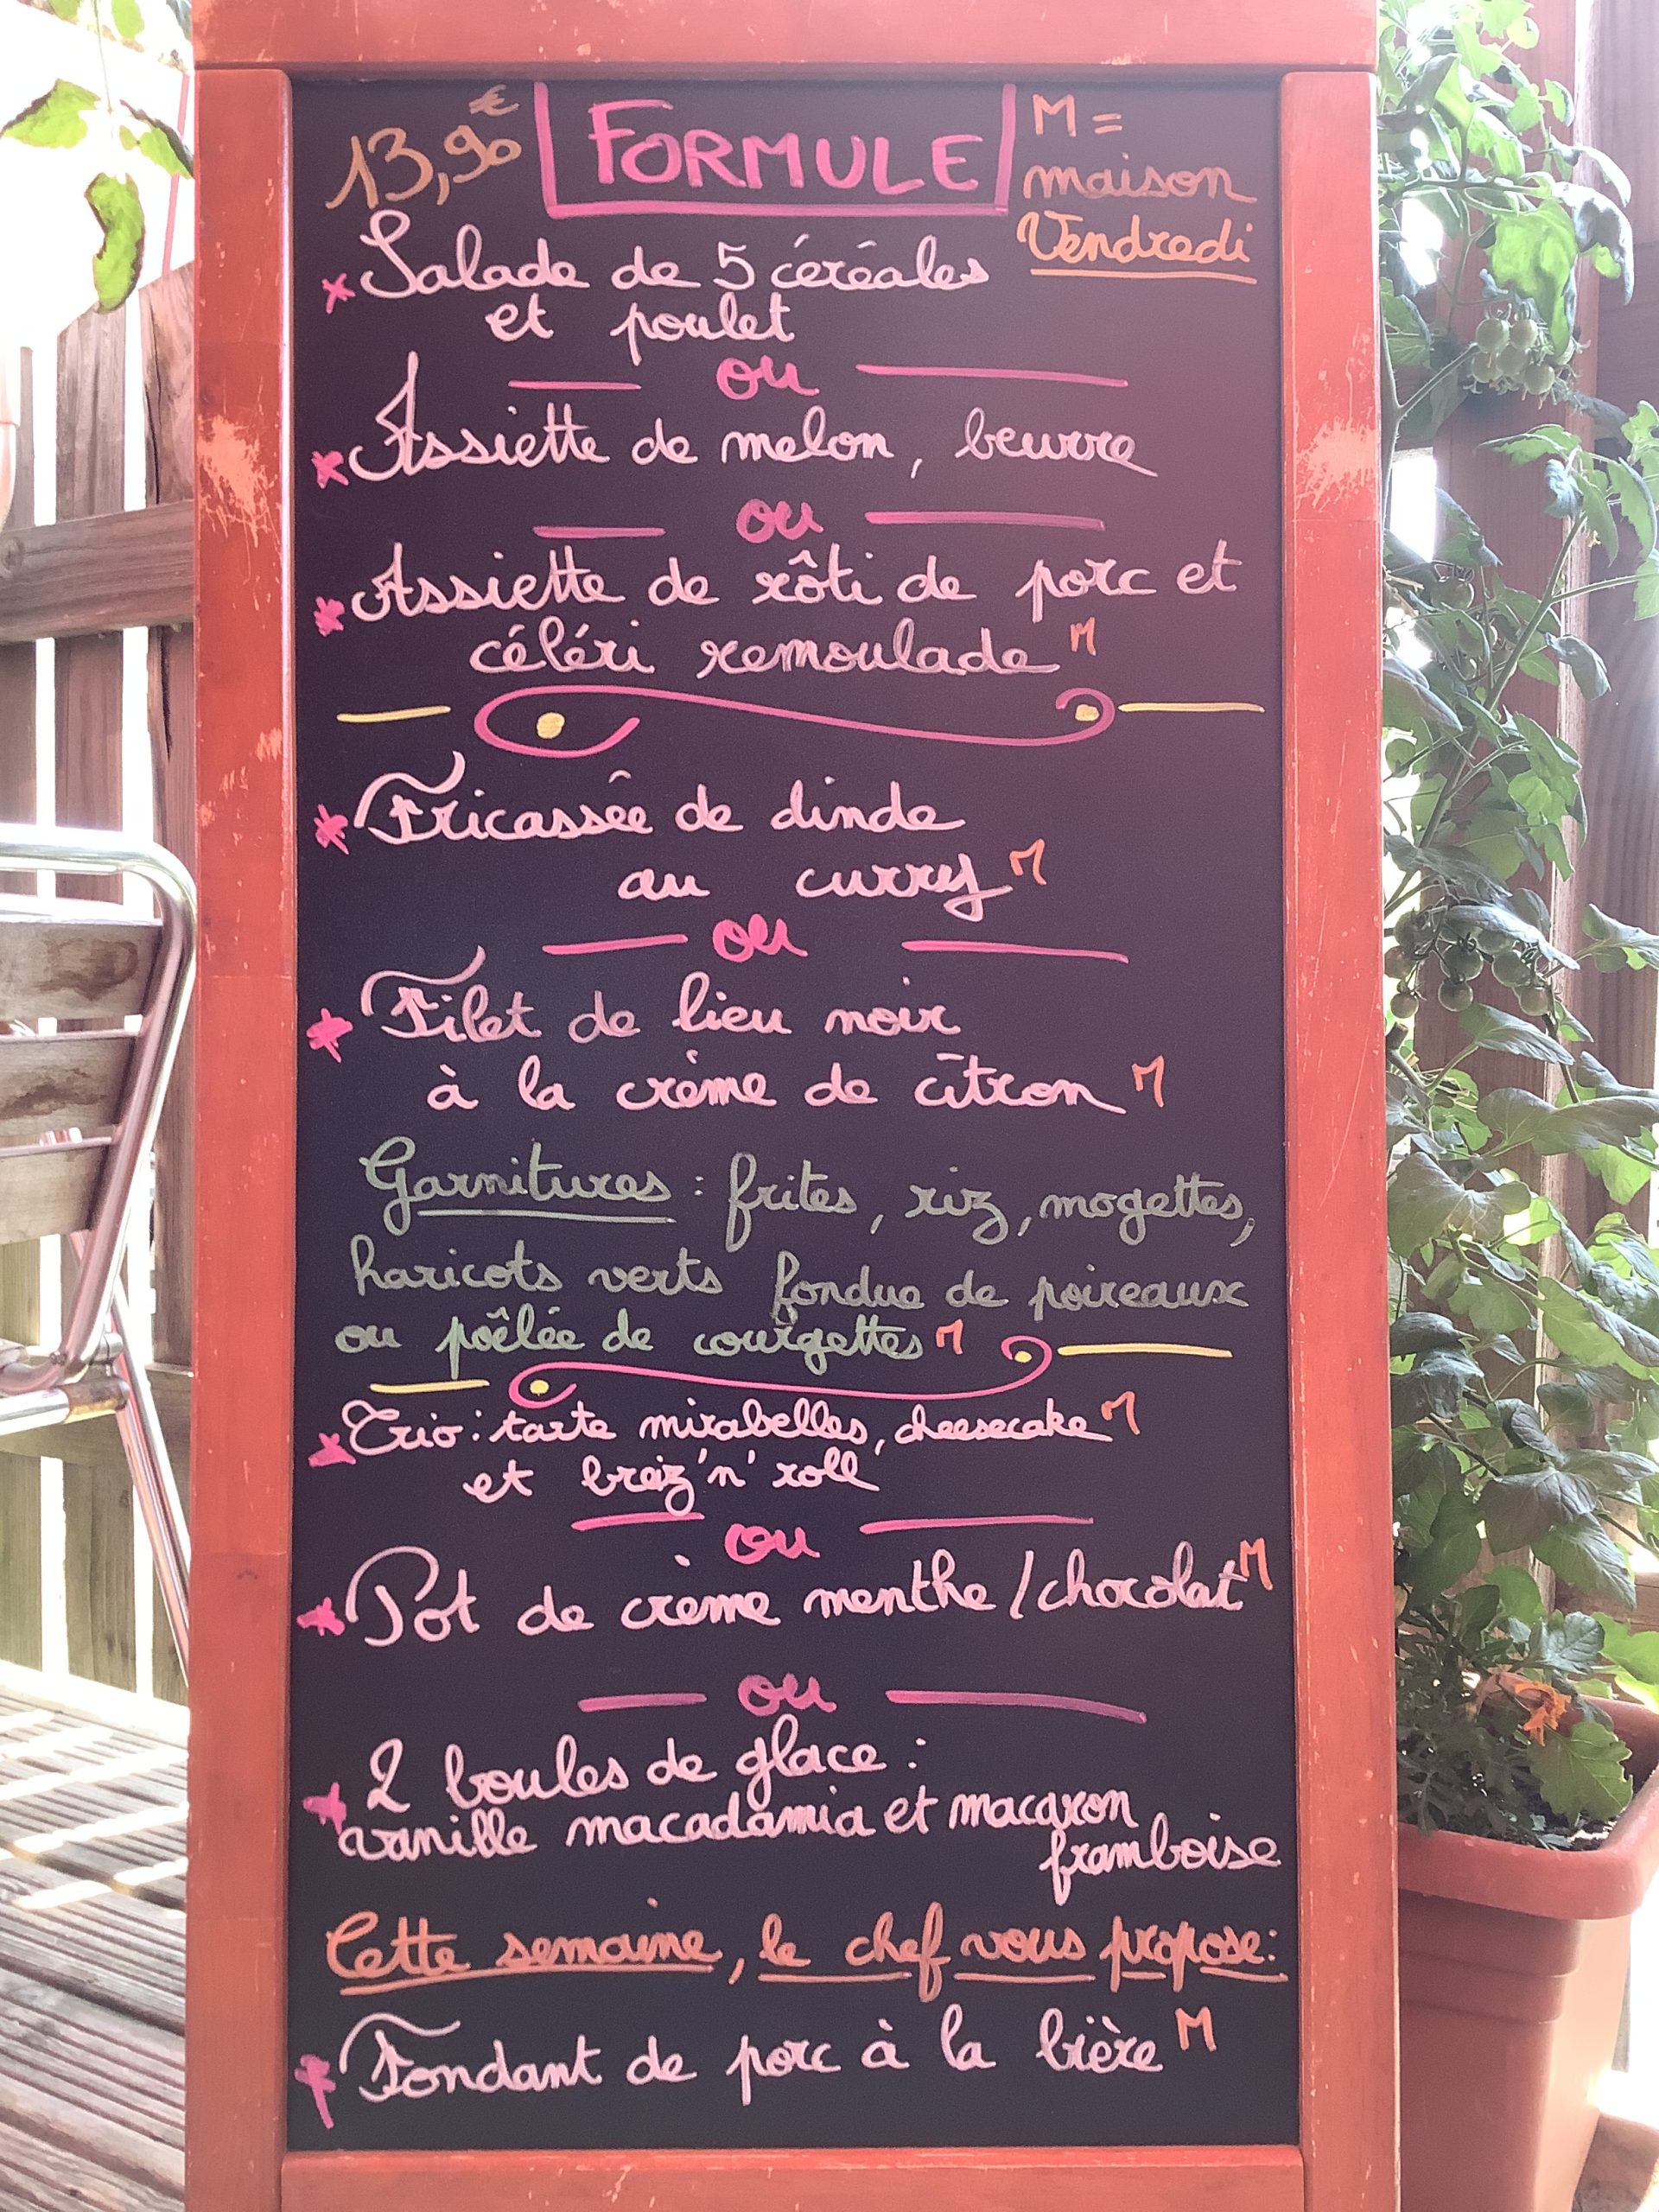 13,90€ FORMULE M =
maison
Vendredi
Salade de 5 céréales
et poulet
ou
Assiette de melon, beurre
ou
Assiette de rôti de porc et
céléri remoulade M
Fricassée de dinde
au curry M
ou
Filet de lieu noir
à la crème de citron M
Garnitures : frites, riz, mogettes,
haricots verts fondue de poireaux
ou poêlée de courgettes M
Trio : tarte mirabelles, cheesecake M
et breiz'n' roll
ou
Pot de crème menthe / chocolat M
ou
2 boules de glace :
vanille macadamia et macaron
framboise
Cette semaine, le chef vous propose :
Fondant de porc à la bière M